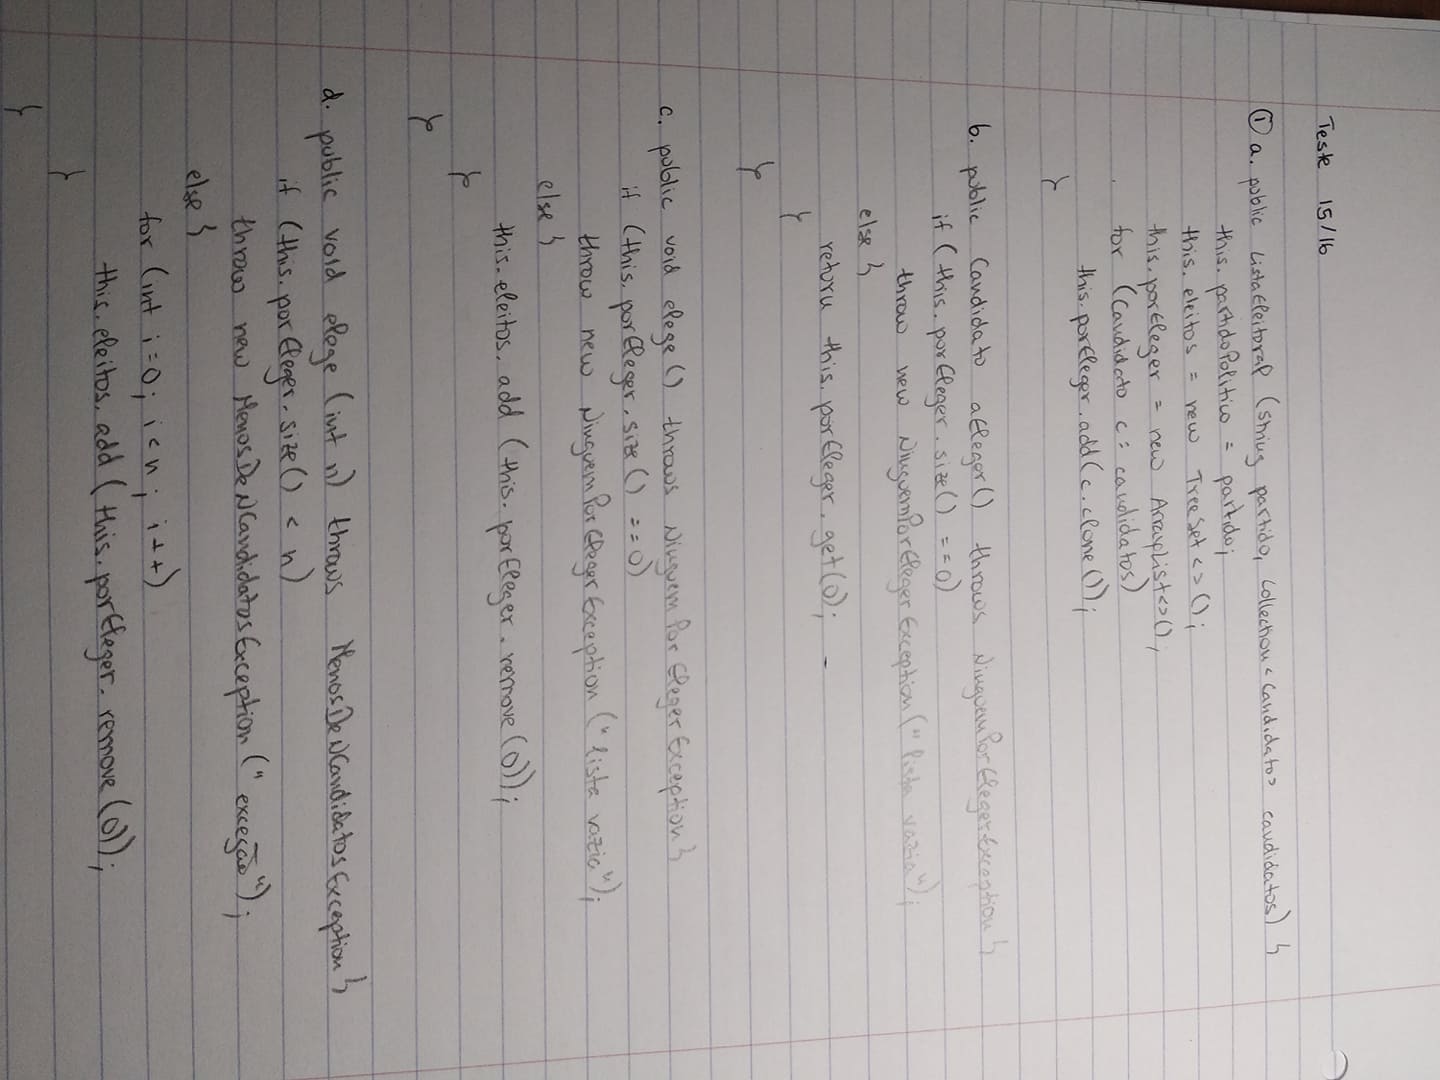 Teste 15/16
① a. public ListaEleitoral (String partido, Collection<Candidato> candidatos) {
this.partidoPolitico = partido;
this.eleitos = new TreeSet<>();
this.porEleger = new ArrayList<>();
for (Candidato c : candidatos)
this.porEleger.add(c.clone());
}
b. public Candidato aEleger() throws NinguemPorElegerException {
if (this.porEleger.size() == 0)
throw new NinguemPorElegerException("lista vazia");
else {
return this.porEleger.get(0);
}
}
c. public void elege() throws NinguemPorElegerException {
if (this.porEleger.size() == 0)
throw new NinguemPorElegerException("lista vazia");
else {
this.eleitos.add(this.porEleger.remove(0));
}
}
d. public void elege (int n) throws MenosDeNCandidatosException {
if (this.porEleger.size() < n)
throw new MenosDeNCandidatosException("exceção");
else {
for (int i=0; i<n; i++)
this.eleitos.add(this.porEleger.remove(0));
}
}